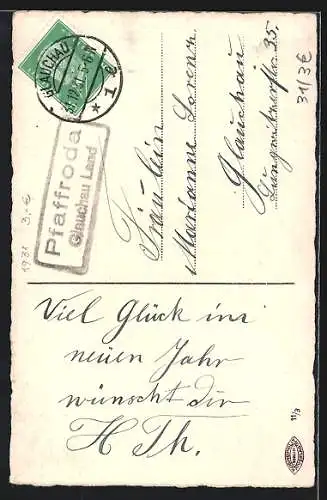 GLAUCHAU
* 1 e *
Pfaffroda
Glauchau Land
Fräulein
Marianne Lorenz
Glauchau
35.
31/3€
1931 3,-€
Viel Glück im
neuen Jahr
wünscht dir
H Th.
11/3